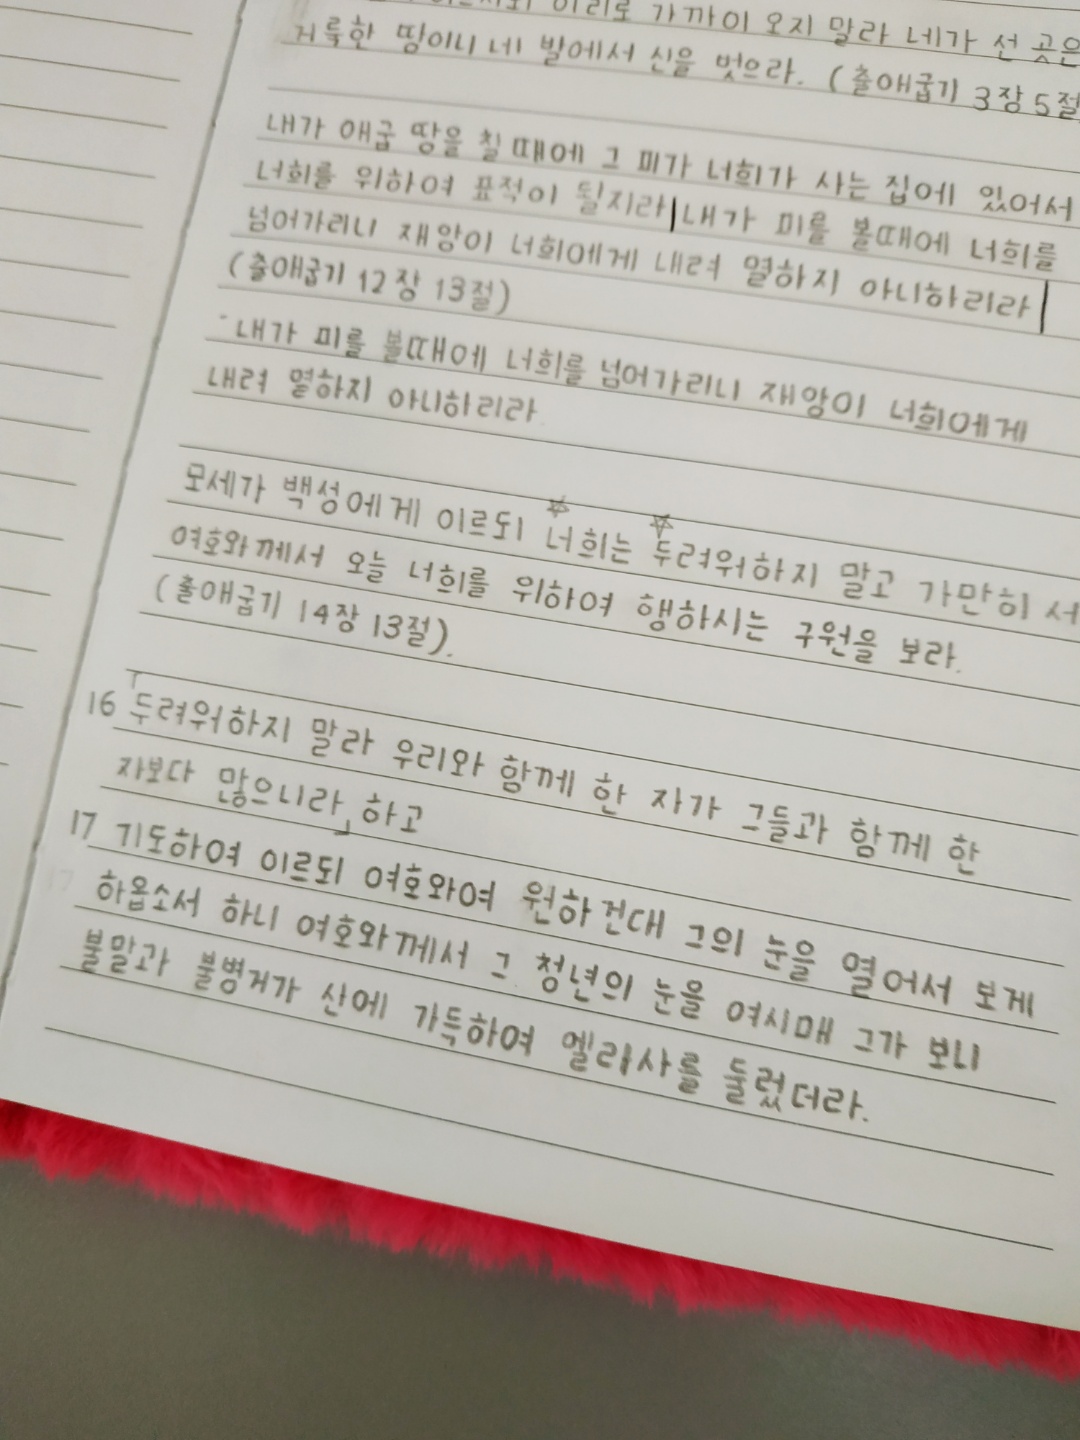 이리로 가까이 오지 말라 네가 선 곳은
거룩한 땅이니 네 발에서 신을 벗으라. (출애굽기 3장 5절
내가 애굽 땅을 칠 때에 그 피가 너희가 사는 집에 있어서
너희를 위하여 표적이 될지라|내가 피를 볼때에 너희를
넘어가리니 재앙이 너희에게 내려 멸하지 아니하리라|
(출애굽기 12장 13절)
내가 피를 볼때에 너희를 넘어가리니 재앙이 너희에게
내려 멸하지 아니하리라
모세가 백성에게 이르되 너희는 두려워하지 말고 가만히 서
여호와께서 오늘 너희를 위하여 행하시는 구원을 보라.
(출애굽기 14장 13절).
16 「두려워하지 말라 우리와 함께 한 자가 그들과 함께 한
자보다 많으니라」 하고
17 기도하여 이르되 여호와여 원하건대 그의 눈을 열어서 보게
하옵소서 하니 여호와께서 그 청년의 눈을 여시매 그가 보니
불말과 불병거가 산에 가득하여 엘리사를 둘렀더라.